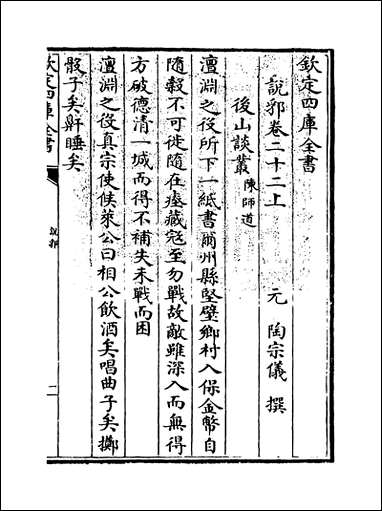 欽定四庫全書
說郛卷二十二上
元 陶宗儀 撰
後山談叢 陳師道
澶淵之役所下一紙書爾州縣堅壁鄉村入保金幣自
隨穀不可徙隨在瘞藏寇至勿戰故敵雖深入而無得
方破德清一城而得不補失未戰而困
澶淵之役真宗使候萊公曰相公飲酒矣唱曲子矣擲
骰子矣鼾睡矣
欽定四庫全書
說郛
二